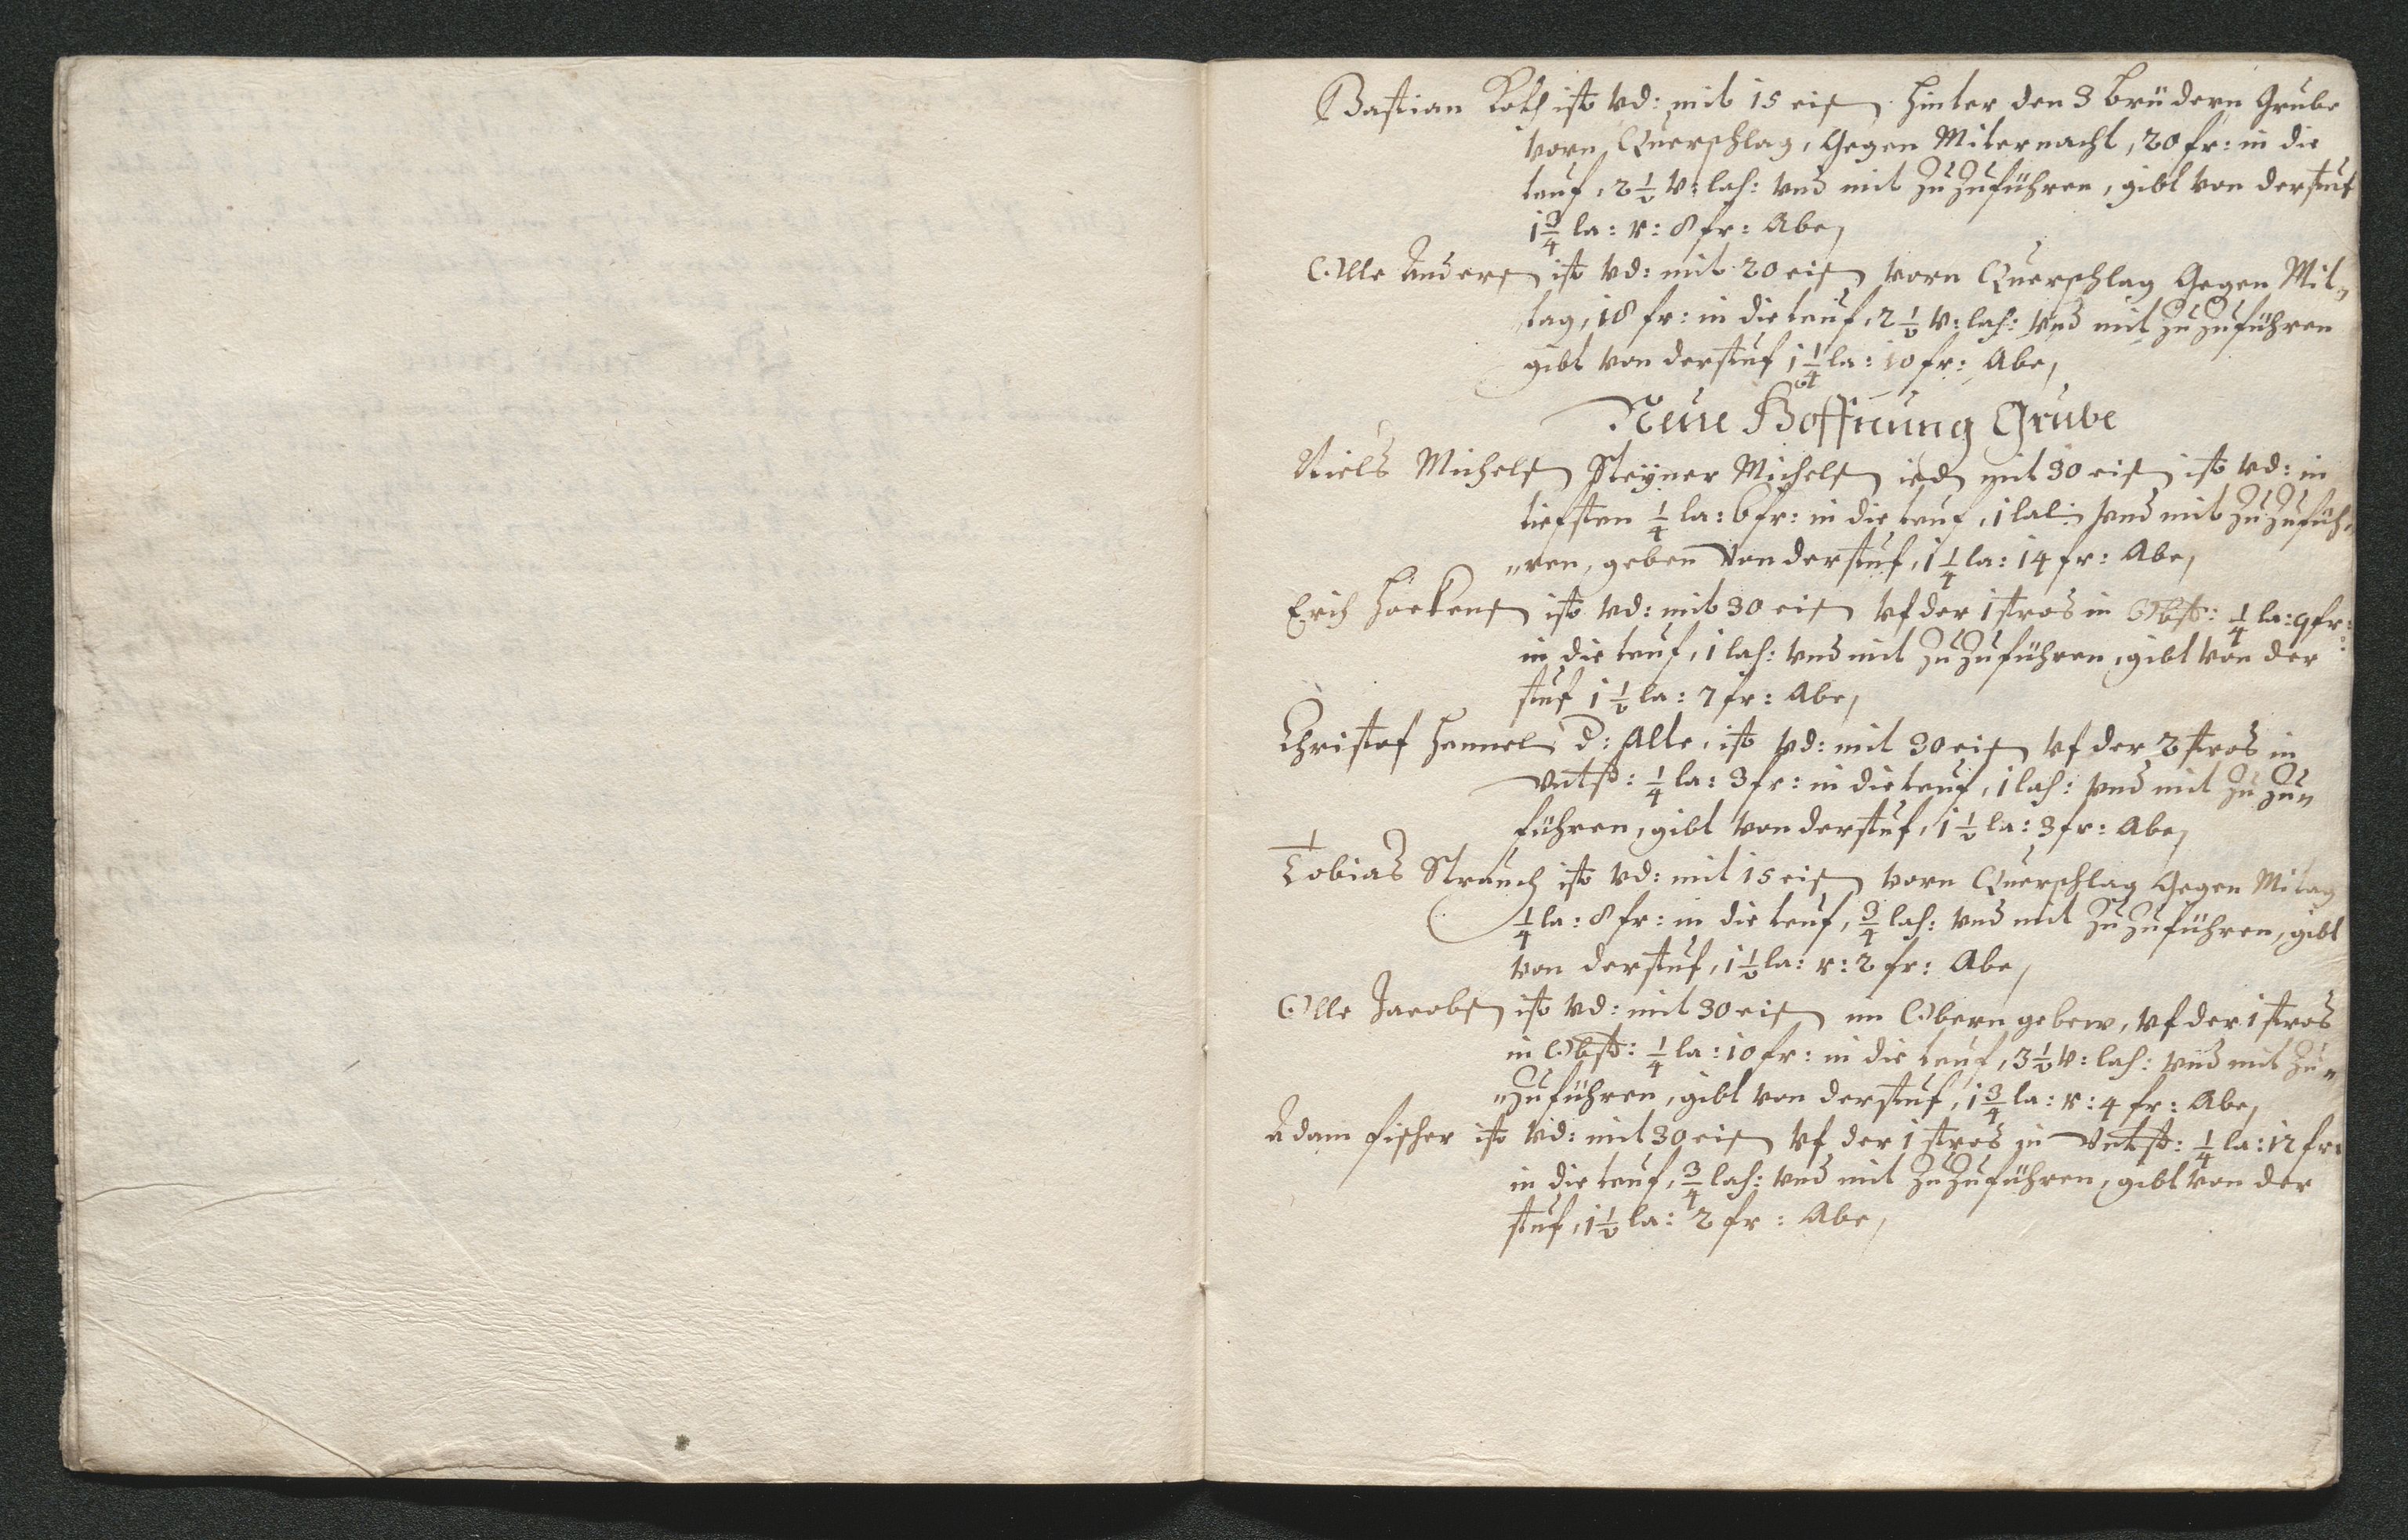 Bastian Koch ist vd: mit 15 eisen hinter den 3 brüdern Grube
vorn Querschlag, Gegen Miternacht, 20 fr: in die
teuf, 2 1/2 v: lah: vnd mit zu zuführen, gibt von derstuf
1 3/4 la: r: 8 fr: Abe,
Olle Andersen ist vd: mit 20 eisen vorn Querschlag Gegen Mit„
tag, 18 fr: in die teuf, 2 1/2 v: lah: vnd mit zu zuführen
gibt von derstuf 1 1/4 la: 10 fr: Abe,
Neue Hoffnung Grube
Niels Michelsen Steÿner Michelsen ied mit 30 eisen ist vd: in
tiefsten 1/4 la: 6 fr: in die teuf, 1 lah: vnd mit zu zufüh„
„ren, geben von derstuf, 1 1/4 la: 14 fr: Abe,
Erich Hoekensen ist vd: mit 30 eisen vf der 1 stros in Obst: 1/4 la: 9 fr:
in die teuf, 1 lah: vnd mit zu zuführen, gibt von der
stuf 1 1/2 la: 7 fr: Abe,
Christof Hemmel d: Alte, ist vd: mit 30 eisen vf der 2 stros in
Vntst: 1/4 la: 3 fr: in die teuf, 1 lah: vnd mit zu zu„
führen, gibt von derstuf, 1 1/2 la: 3 fr: Abe,
Tobias Strauch ist vd: mit 15 eisen vorn Querschlag Gegen Mitag
1/4 la: 8 fr: in die teuf, 3/4 lah: vnd mit zu zuführen, gibt
von derstuf, 1 1/2 la: r: 2 fr: Abe,
Olle Jacobsen ist vd: mit 30 eisen im Obern gebew, vf der 1 stros
in Obst: 1/4 la: 10 fr: in die teuf, 3 1/2 v: lah: vnd mit zu„
„zuführen, gibt von derstuf, 1 3/4 la: r: 4 fr: Abe,
Adam Fischer ist vd: mit 30 eisen vf der 1 stros in Vntst: 1/4 la: 12 fr:
in die teuf, 3/4 lah: vnd mit zu zuführen, gibt von der
stuf, 1 1/2 la: 2 fr: Abe,